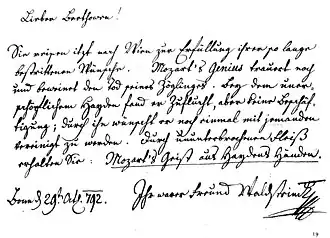 Lieber Beethowen!
Sie reisen itzt nach Wien zur Erfüllung ihrer so lange
bestrittenen Wünsche. Mozart's Genius trauert noch
und beweinet den Tod seines Zöglinges. Bey dem uner-
schöpflichem Hayden fand er Zuflucht, aber keine Beschäf-
tigung; durch ihn wünscht er noch einmal mit jemanden
vereinigt zu werden. Durch ununterbrochenen Fleiß
erhalten Sie: Mozart's Geist aus Haydens Händen.
Bonn d 29t Oct. 792. Ihr warer Freund Waldstein
19